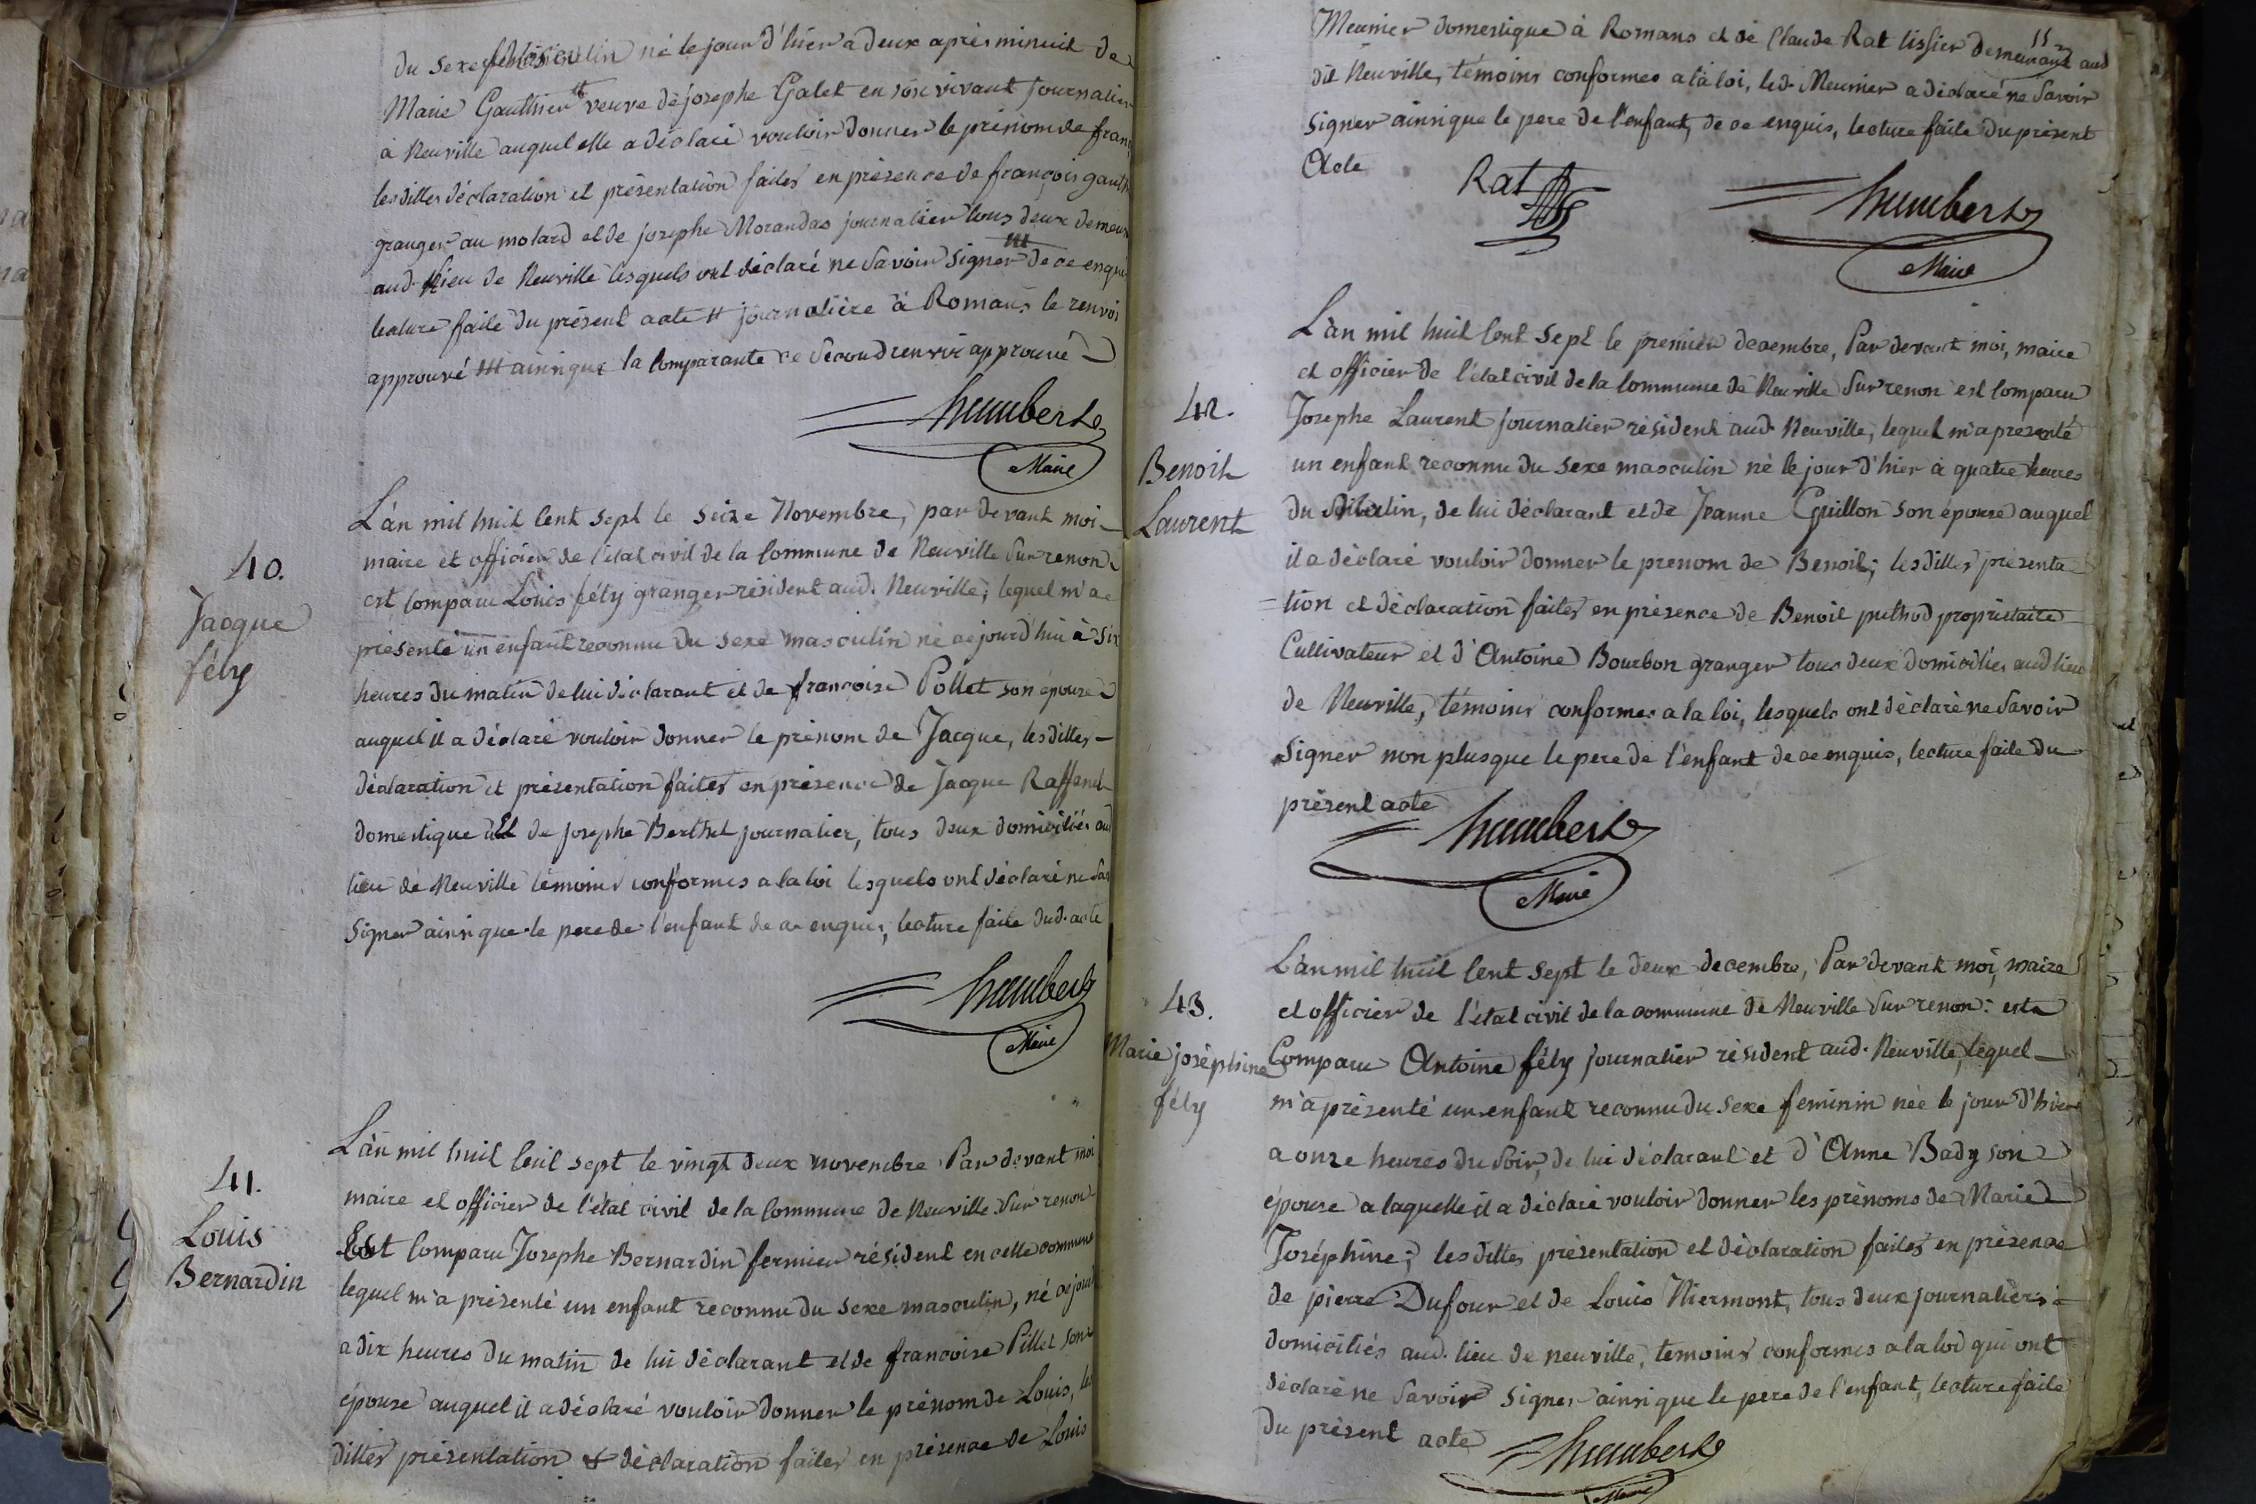 du sexe masculin né le jour d'hier a deux après minuit de
Marie Gauthier # veuve de josephe Galet en son vivant journalier
à Neuville auquel elle a déclaré vouloir donner le prénom de franç
lesdittes déclaration et présentation faites en présence de françois gauth
granger au molard et de josephe Morandas journalier tous deux demeur
aud. lieu de Neuville lesquels ont déclaré ne Savoir signer ### de ce enqui
lecture faite du présent acte # journalière à Romans, le renvoi
approuvé ### ainsi que la Comparante ce Second renvoi approuvé
humbert
Maire
40.
Jacque
fély
L'an mil huit Cent sept le seize Novembre, par devant moi
maire et officier de l'état civil de la Commune de Neuville Sur renon
est Comparu Louis fély granger résident aud. Neuville, lequel m'a
présenté un enfant reconnu du sexe masculin né cejourd'hui à six
heures du matin de lui déclarant et de françoise Pollet son épouse
auquel il a déclaré vouloir donner le prénom de Jacque, lesdittes
déclaration et présentation faites en présence de Jacque Raffanel
domestique Et de josephe Berthet journalier, tous deux domiciliés aud
lieu de Neuville témoins conformes a la loi lesquels ont déclaré ne Sav
Signer ainsi que le pere de l'enfant de ce enquis, lecture faite dud. acte
humbert
Maire
41.
Louis
Bernardin
L'an mil huit Cent sept le vingt deux novembre Par devant moi
maire et officier de l'état civil de la Commune de Neuville Sur renon
Est Comparu Josephe Bernardin fermier résident en cette commune
lequel m'a présenté un enfant reconnu du sexe masculin, né cejourd
a dix heures du matin de lui déclarant et de françoise Pillet son
épouse auquel il a déclaré vouloir donner le prénom de Louis, les
dittes présentation & déclaration faites en présence de Louis
Meunier domestique à Romans et de Claude Rat tissier demeurant aud
dit Neuville, témoins conformes a la loi, led. Meunier a déclaré ne Savoir
signer ainsi que le pere de l'enfant, de ce enquis, lecture faite du présent
Acte
Rat
humbert
Maire
42.
Benoit
Laurent
L'an mil huit Cent Sept le premier decembre, Par devant moi, maire
et officier de l'état civil de la Commune de Neuville Sur renon est Comparu
Josephe Laurent journalier résident aud. Neuville, lequel m'a présenté
un enfant reconnu du sexe masculin né le jour d'hier à quatre heures
du Matin, de lui déclarant et de Jeanne Guillon son épouse auquel
il a déclaré vouloir donner le prenom de Benoit; lesdittes présenta
tion et déclaration faites en présence de Benoit puthod propriétaire
Cultivateur et d'Antoine Bourbon granger tous deux domiciliés aud lieu
de Neuville, témoins conformes a la loi, lesquels ont déclaré ne Savoir
signer non plus que le pere de l'enfant de ce enquis, lecture faite du
présent acte
humbert
Maire
43.
Marie joséphine
fély
L'an mil huit Cent Sept le deux decembre, Par devant moi, maire
et officier de l'état civil de la commune de Neuville Sur renon: est
Comparu Antoine fély journalier résident aud. Neuville, lequel
m'a présenté un enfant reconnu du sexe feminin née le jour d'hier
a onze heures du Soir, de lui déclarant et d'Anne Bady son
épouse a laquelle il a déclaré vouloir donner les prénoms de Marie
Joséphine; lesdittes présentation et déclaration faites en présence
de pierre Dufour et de Louis Niermont, tous deux journaliers
domiciliés aud. lieu de neuville, temoins conformes a la loi qui ont
déclaré ne Savoir signer ainsi que le pere de l'enfant, lecture faite
du présent acte
humbert
Maire